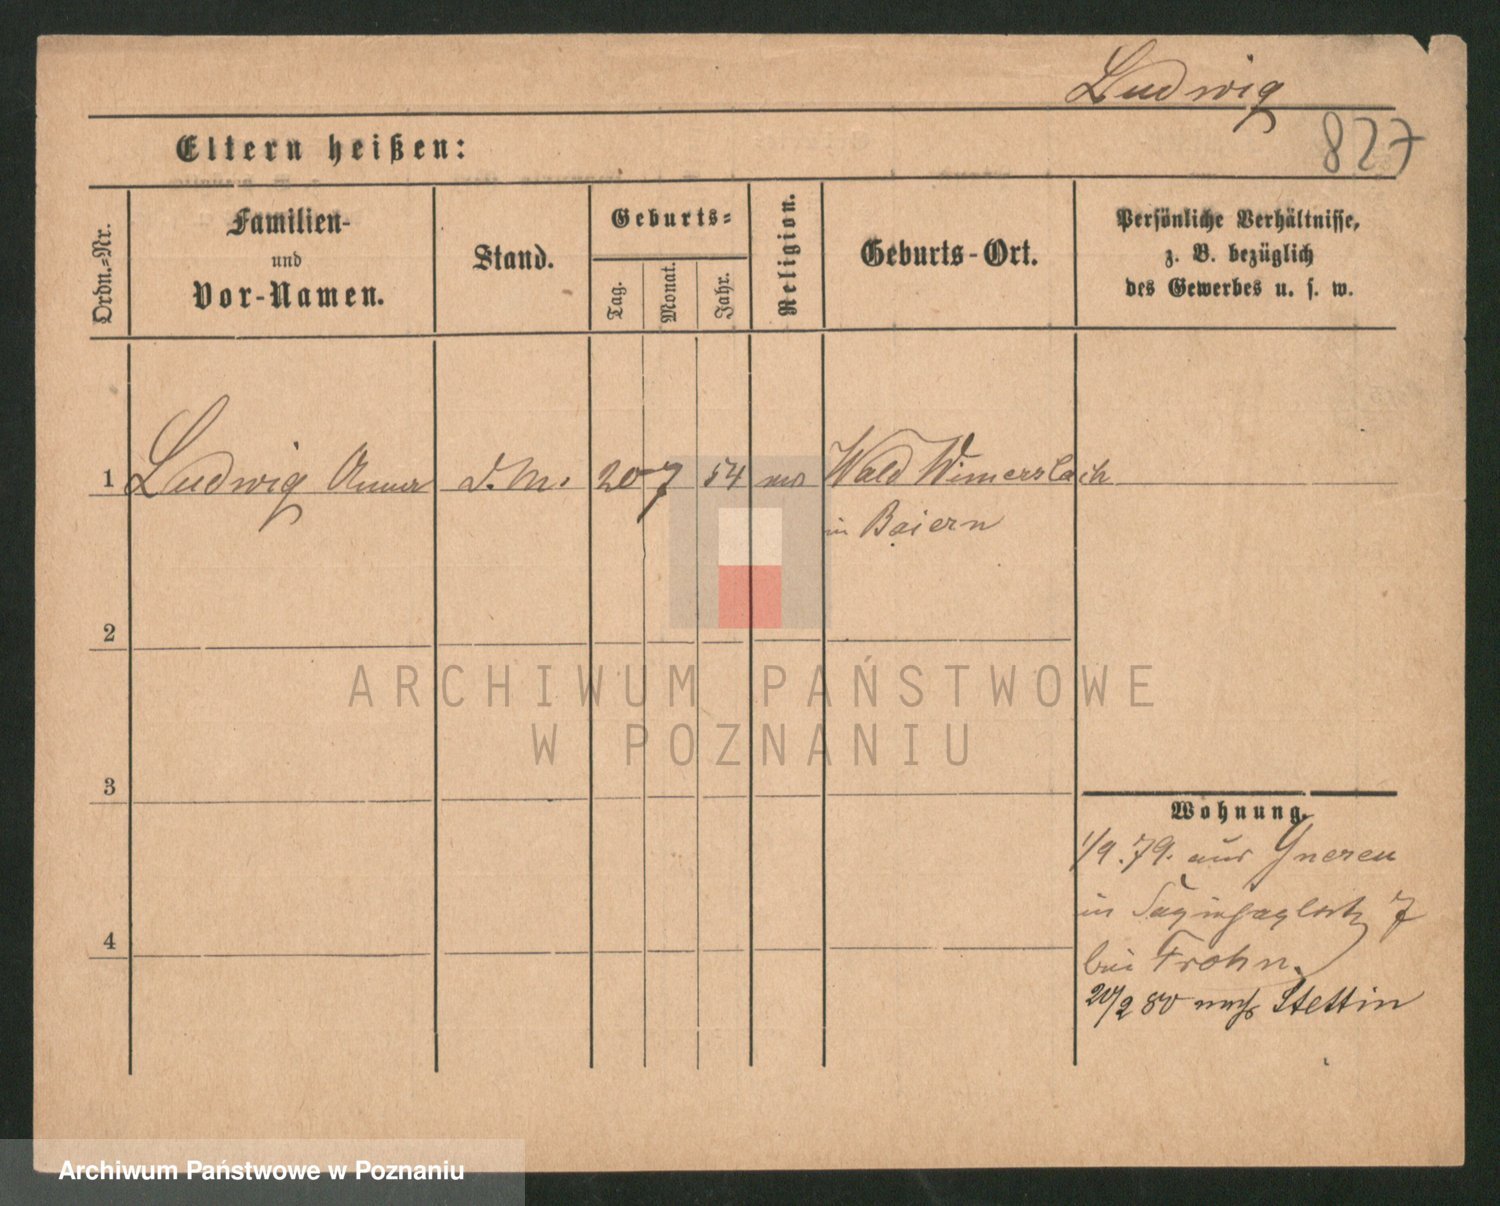 Ludwig
827
Eltern heißen:
Ordn.=Nr.
Familien-
und
Vor-Namen.
Stand.
Geburts=
Tag.
Monat.
Jahr.
Religion.
Geburts-Ort.
Persönliche Verhältnisse,
z. B. bezüglich
des Gewerbes u. s. w.
1 Ludwig d. M. 20 7 54 Wald Wimerslach
in Baiern
2
ARCHIWUM PAŃSTWOWE
W POZNANIU
3
Wohnung.
1/9. 79. aus Gnesen
in 7
bei Frohn.
4
20/2 80 nach Stettin
Archiwum Państwowe w Poznaniu